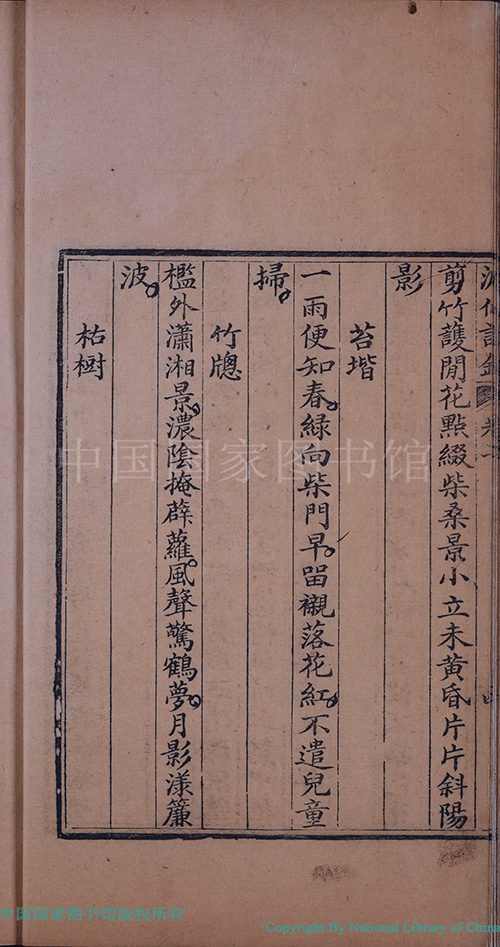 剪竹護閒花點綴柴桑景小立未黃昏片片斜陽
影
苔堦
一雨便知春綠向柴門早留襯落花紅不遣兒童
掃
竹牕
檻外瀟湘景濃陰掩薜蘿風聲驚鶴夢月影漾簾
波
枯樹
中国国家图书馆
中国国家图书馆版权所有
Copyright By National Library of China